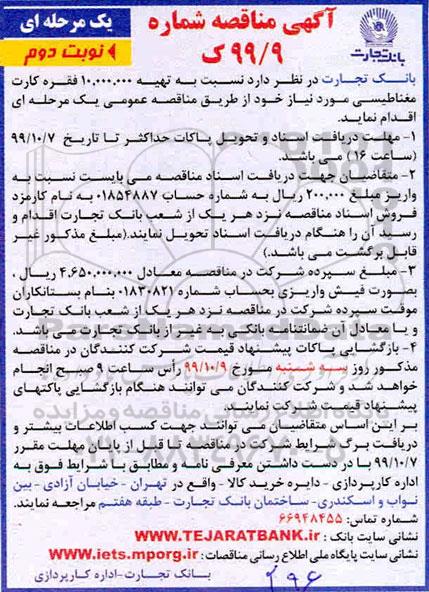 آگهی مناقصه شماره
۹۹/۹ ک
یک مرحله ای
نوبت دوم
بانک تجارت
بانک تجارت در نظر دارد نسبت به تهیه ۱۰.۰۰۰.۰۰۰ فقره کارت
مغناطیسی مورد نیاز خود از طریق مناقصه عمومی یک مرحله ای
اقدام نماید.
۱- مهلت دریافت اسناد و تحویل پاکات حداکثر تا تاریخ ۹۹/۱۰/۷
(ساعت ۱۶) می باشد.
۲- متقاضیان جهت دریافت اسناد مناقصه می بایست نسبت به
واریز مبلغ ۲۰۰.۰۰۰ ریال به شماره حساب ۰۱۸۵۴۸۸۷ به نام کارمزد
فروش اسناد مناقصه نزد هر یک از شعب بانک تجارت اقدام و
رسید آن را هنگام دریافت اسناد تحویل نمایند.(مبلغ مذکور غیر
قابل برگشت می باشد.)
۳- مبلغ سپرده شرکت در مناقصه معادل ۴.۶۵۰.۰۰۰.۰۰۰ ریال ،
بصورت فیش واریزی بحساب شماره ۰۱۸۳۰۸۲۱ بنام بستانکاران
موقت سپرده شرکت در مناقصه نزد هر یک از شعب بانک تجارت
و یا معادل آن ضمانتنامه بانکی به غیر از بانک تجارت می باشد.
۴- بازگشایی پاکات پیشنهاد قیمت شرکت کنندگان در مناقصه
مذکور روز سه شنبه مورخ ۹۹/۱۰/۹ رأس ساعت ۹ صبح انجام
خواهد شد و شرکت کنندگان می توانند هنگام بازگشایی پاکتهای
پیشنهاد قیمت شرکت نمایند.
بر این اساس متقاضیان می توانند جهت کسب اطلاعات بیشتر و
دریافت برگ شرایط شرکت در مناقصه تا قبل از پایان مهلت مقرر
۹۹/۱۰/۷ با در دست داشتن معرفی نامه و مطابق با شرایط فوق به
اداره کارپردازی - دایره خرید کالا - واقع در تهران - خیابان آزادی - بین
نواب و اسکندری- ساختمان بانک تجارت - طبقه هفتم مراجعه نمایند.
شماره تماس: ۶۶۹۴۸۴۵۵
نشانی سایت بانک : WWW.TEJARATBANK.ir
نشانی سایت پایگاه ملی اطلاع رسانی مناقصات : www.iets.mporg.ir
بانک تجارت-اداره کارپردازی
۲۹۶